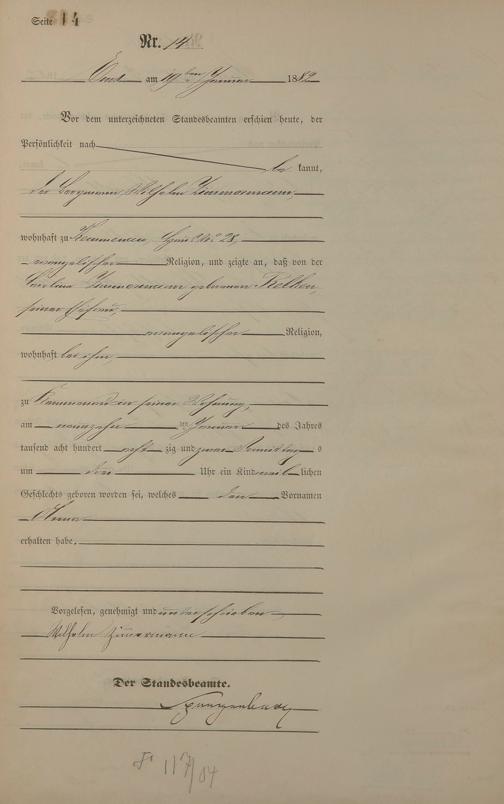 Seite 14
Nr. 14.
am 19ten Januar 1882
Vor dem unterzeichneten Standesbeamten erschien heute, der
Persönlichkeit nach
be kannt,
der Bergmann Wilhelm Zimmermann,
wohnhaft zu 28,
evangelischer Religion, und zeigte an, daß von der
Zimmermann geborenen
seiner Ehefrau,
evangelischer Religion,
wohnhaft bei ihm
zu in seiner Wohnung,
am neunzehn ten Januar des Jahres
tausend acht hundert acht zig und zwei Vormittag s
um drei Uhr ein Kind weib lichen
Geschlechts geboren worden sei, welches den Vornamen
Anna
erhalten habe.
Vorgelesen, genehmigt und unterschrieben
Wilhelm Zimmermann
Der Standesbeamte.
117/84